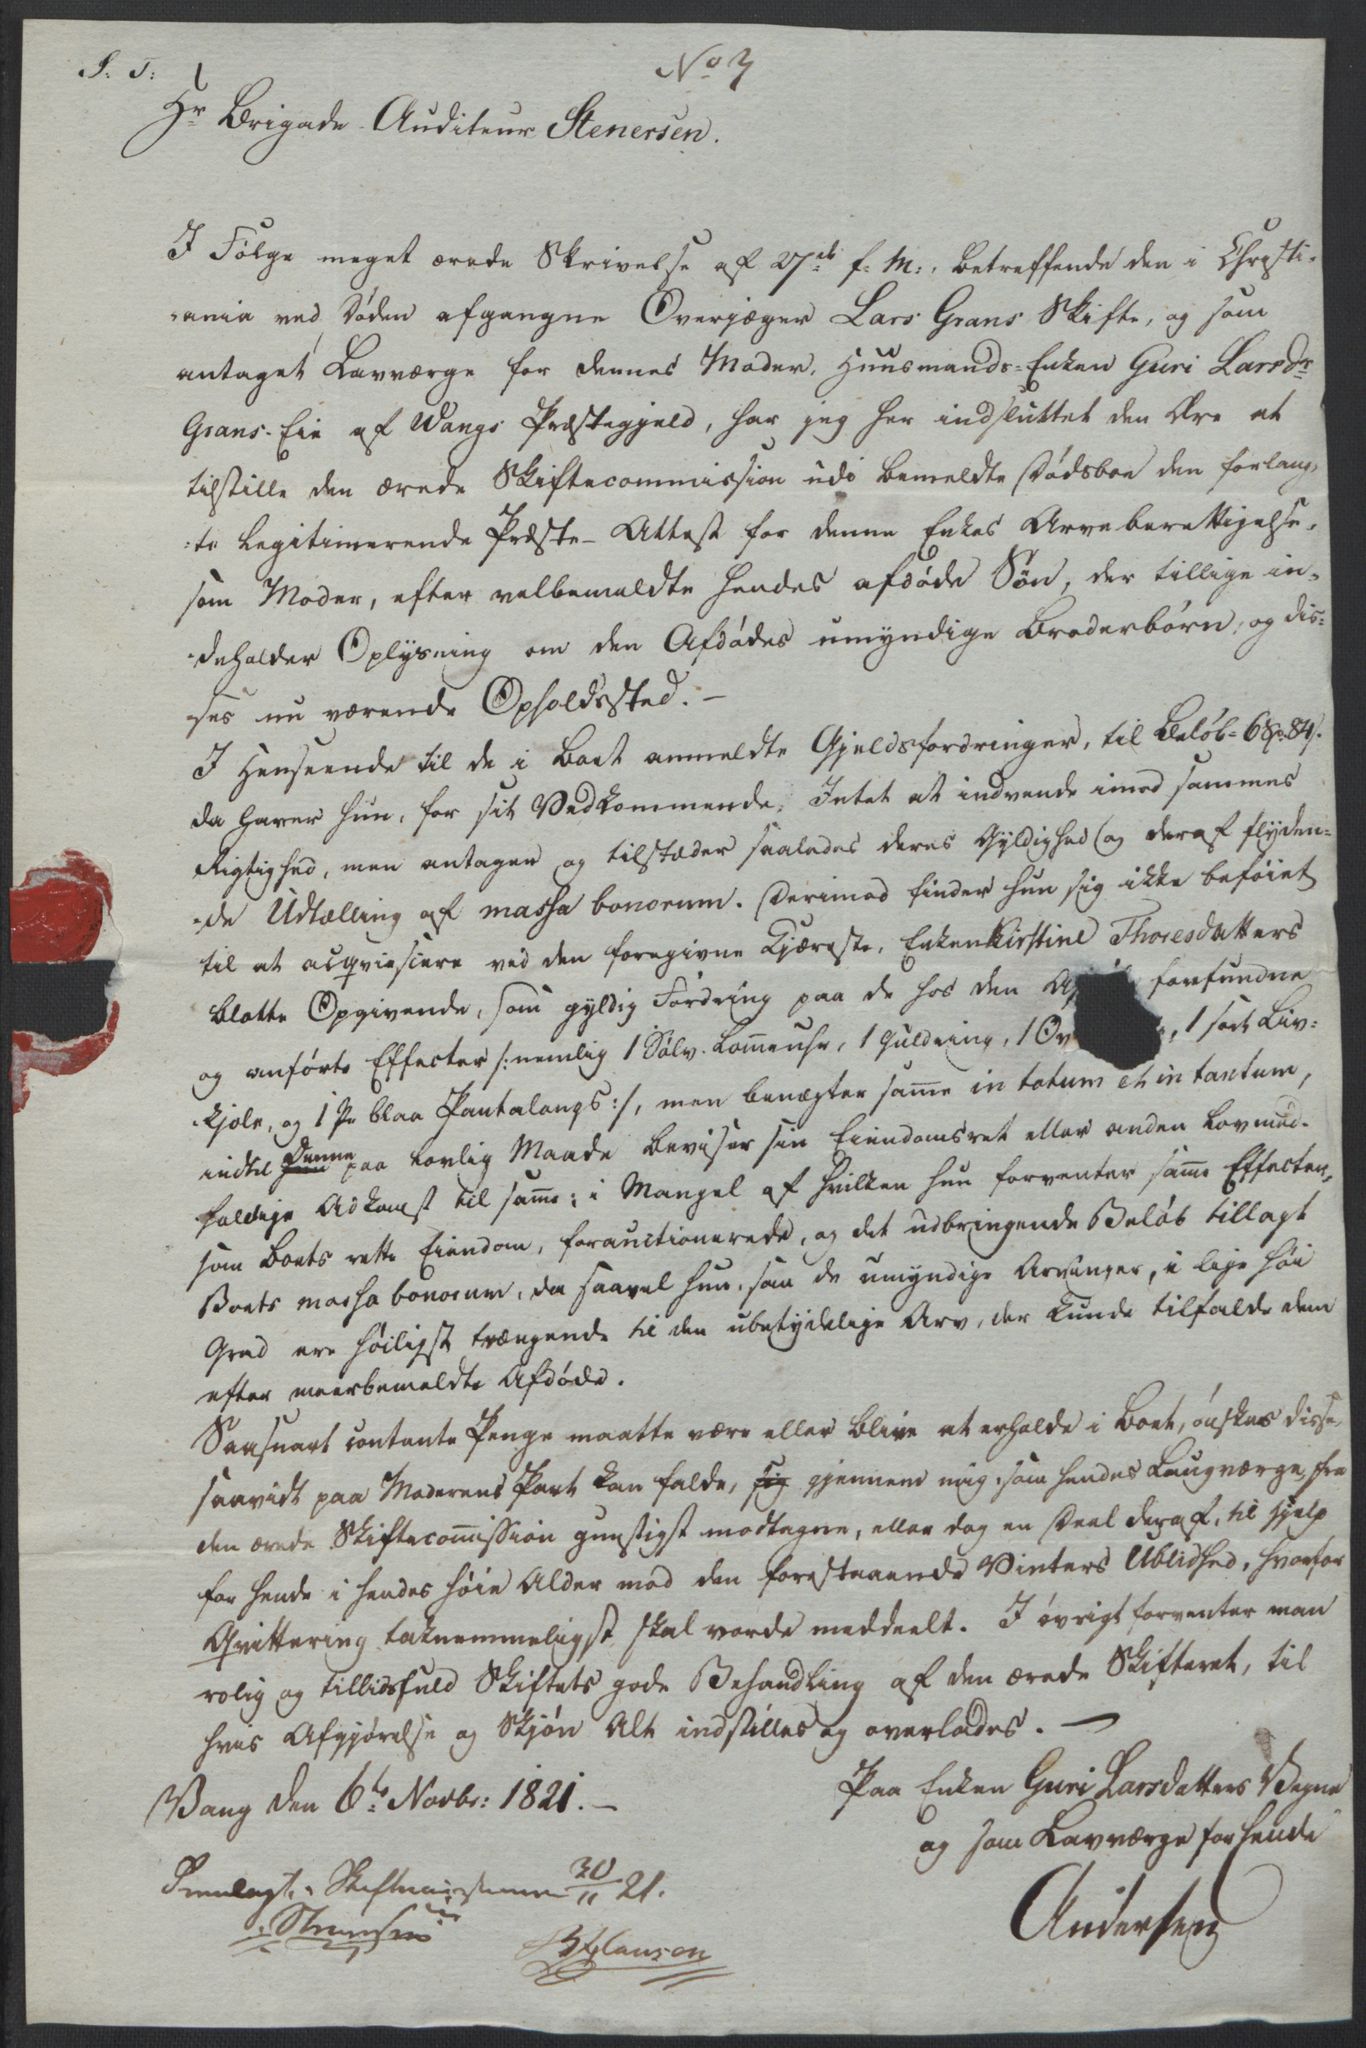 S. T. No 7
Hr Brigade-Auditeur Stenersen.
I Følge meget ærede Skrivelse af 27de f. M., betreffende den i Christi-
-ania ved Døden afgangne Overjæger Lars Grans Skifte, og som
antaget Lavværge for dennes Moder, Huusmands-Enken Guri Larsdr
Grans-Eie af Wangs Præstegjeld, har jeg her indsluttet den Ære at
tilstille den ærede Skiftecommission udi bemeldte Dødsboe den forlang-
-te legitimerende Præste-Attest for denne Enkes Arveberettigelse,
som Moder, efter velbemeldte hendes afdøde Søn, der tillige in-
-deholder Oplysning om den Afdødes umyndige Broderbørn, og dis-
-ses nu værende Opholdssted. -
I Henseende til de i Boet anmeldte Gjeldsfordringer, til Beløb 6 Sp. 84 s.
da haver hun, for sit Vedkommende, Intet at indvende imod sammes
Rigtighed, men antager og tilstæder saaledes deres Gyldighed og deraf flyden-
-de Udtælling af massa bonorum. Derimod finder hun sig ikke beføiet
til at acqviesiere ved den foregivne Kjæreste, Enken Kirstine Thoresdatters
blotte Opgivende, som gyldig Fordring paa de hos den forefundne
og anførte Effecter /: nemlig 1 Sølv-Lommeuhr, 1 Guldring, 1 , 1 sort Liv-
-kjole, og 1 Pr blaa Pantalongs :/, men benægter samme in totum et in tantum,
indtil denne paa lovlig Maade beviser sin Eiendomsret eller anden lovmed-
holdige Adkomst til samme; i Mangel af hvilken hun forventer samme Effecter,
som Boets rette Eiendom, forauctionerede, og det udbringende Beløb tillagt
Boets massa bonorum, da saavel hun, som de umyndige Arvinger, i lige høi
Grad ere høiligst trængende til den ubetydelige Arv, der kunde tilfalde dem
efter meerbemeldte Afdøde.
Saasnart contante Penge maatte være eller blive at erholde i Boet, ønskes disse,
saavidt paa Moderens Part kan falde, sig gjennem mig, som hendes Laugværge, fra
den ærede Skiftecommission gunstigst modtagne, eller dog en Deel deraf, til Hjelp
for hende i hendes høie Alder mod den forestaaende Vinters Ublidhed, hvorfor
Qvittering taknemmeligst skal vorde meddeelt. I øvrigt forventer man
rolig og tillidsfuld Skiftets gode Behandling af den ærede Skifteret, til
hvis Afgjørelse og Skjøn Alt indstilles og overlades. -
Vang den 6te Novbr: 1821. -
Paa Enken Guri Larsdatters Vegne
og som Lavværge for hende
Andersen
Fremlagt i Skiftesamlingen 30/11 21.
Stenersen
Hansen